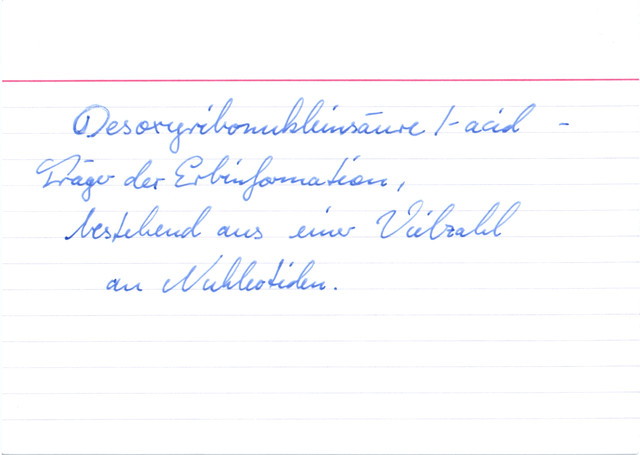 Desoxyribonukleinsäure /-acid -
Träger der Erbinformation,
bestehend aus einer Vielzahl
an Nukleotiden.